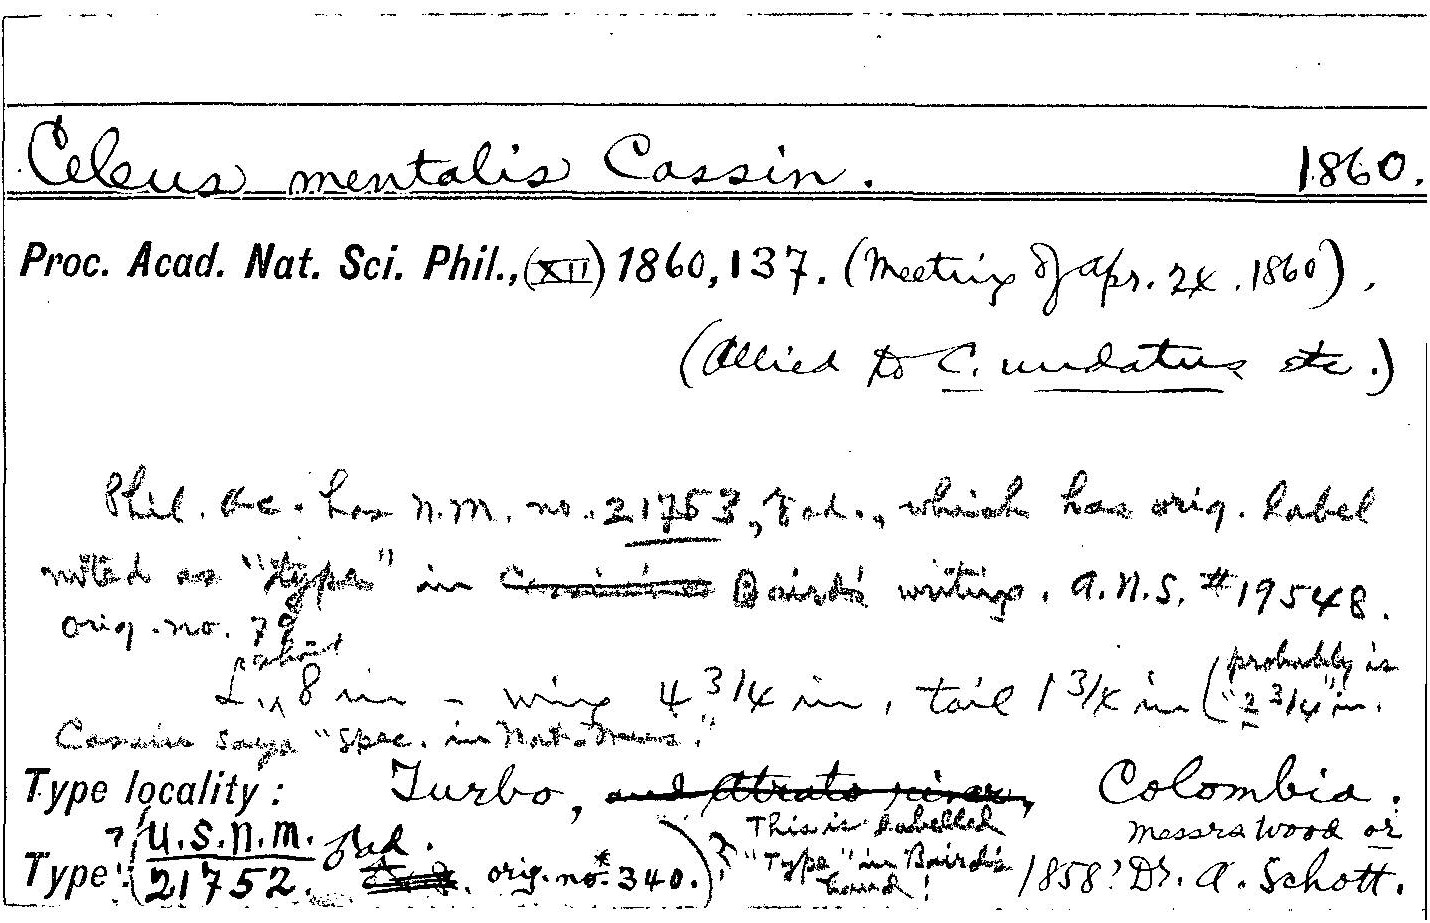 Celeus mentalis Cassin. 1860.
Proc. Acad. Nat. Sci. Phil., (XII) 1860, 137. (Meeting of Apr. 24. 1860).
(Allied to C. undatus etc.)
Phil. Ac. has N.M. no. 21753, ad., which has orig. label
noted as "type" in Baird's writing. A.N.S. #19548.
orig. no. 79
about
L. 8 in - wing 4 3/4 in, tail 1 3/4 in (probably is
"2 3/4" in.
Cassin says "Spec. in Nat. Mus."
Type locality: Turbo, and Atrato river, Colombia.
Messrs Wood or
Type: ?(U.S.N.M. 21752. ad. orig. no. 340.)? This is labelled
"Type" in Baird's
hand! 1858? Dr. A. Schott.